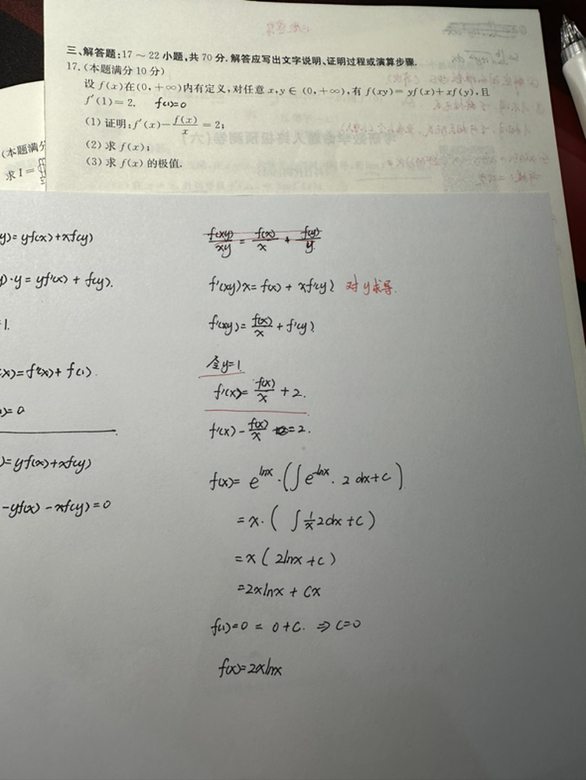 三、解答题:17～22小题,共70分.解答应写出文字说明、证明过程或演算步骤.
17.(本题满分10分)
设f(x)在(0,+∞)内有定义,对任意x,y∈(0,+∞),有f(xy)=yf(x)+xf(y),且
f′(1)=2. f(1)=0
(1)证明:f′(x)-f(x)/x=2;
(2)求f(x);
(3)求f(x)的极值.
(本题满分
求I=
y)=yf(x)+xf(y)
)·y=yf′(x)+f(y).
1.
(x)=f′(x)+f(1).
)=0
)=yf(x)+xf(y)
-yf(x)-xf(y)=0
f(xy)/xy=f(x)/x+f(y)/y
f′(xy)x=f(x)+xf′(y) 对y求导.
f′(xy)=f(x)/x+f′(y)
令y=1
f′(x)=f(x)/x+2.
f′(x)-f(x)/x=2.
f(x)=e^lnx·(∫e^-lnx·2dx+C)
=x·(∫1/x 2dx+C)
=x(2lnx+C)
=2xlnx+Cx
f(1)=0=0+C.⇒C=0
f(x)=2xlnx